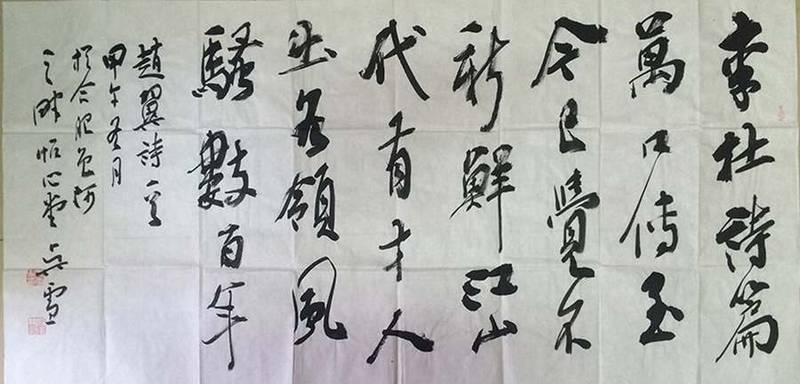 李杜詩篇
萬口傳至
今已覺不
新鮮江山
代有才人
出各領風
騷數百年
趙翼詩一首
甲午冬月
於合肥包河
之畔恬心堂吳雪